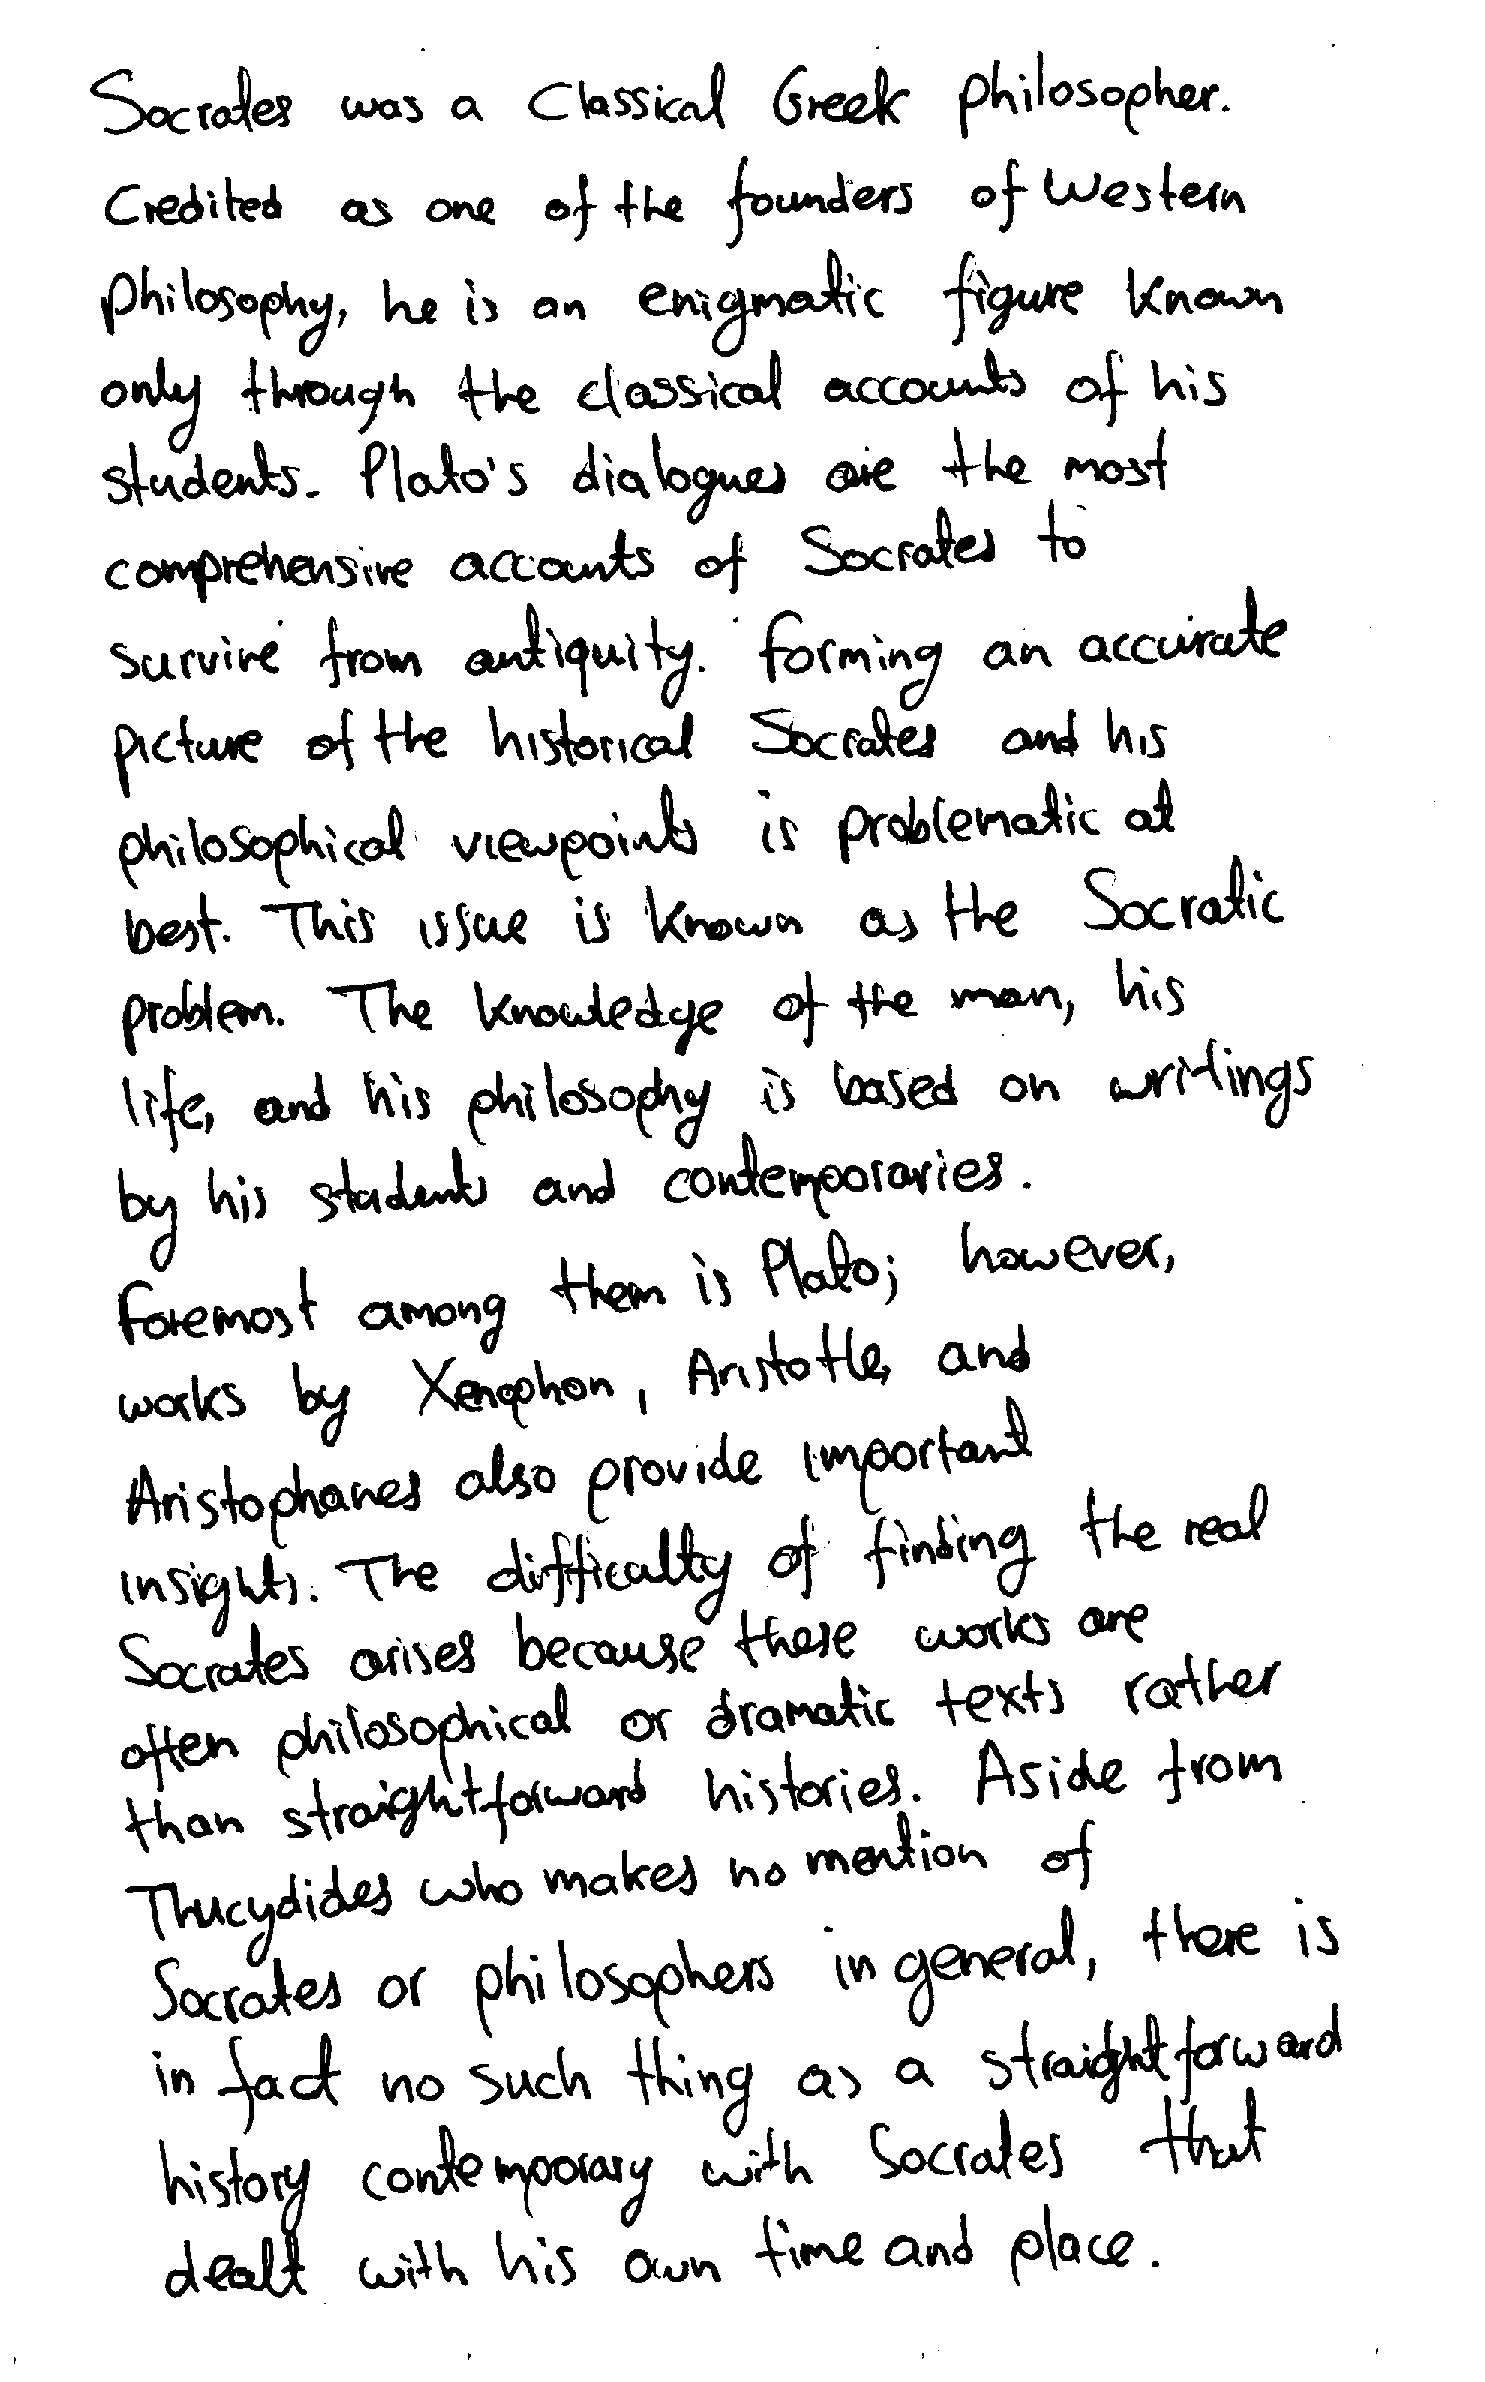 Socrates was a Classical Greek philosopher.
Credited as one of the founders of Western
philosophy, he is an enigmatic figure known
only through the classical accounts of his
students. Plato's dialogues are the most
comprehensive accounts of Socrates to
survive from antiquity. Forming an accurate
picture of the historical Socrates and his
philosophical viewpoints is problematic at
best. This issue is known as the Socratic
problem. The knowledge of the man, his
life, and his philosophy is based on writings
by his students and contemporaries.
Foremost among them is Plato; however,
works by Xenophon, Aristotle, and
Aristophanes also provide important
insights. The difficulty of finding the real
Socrates arises because these works are
often philosophical or dramatic texts rather
than straightforward histories. Aside from
Thucydides who makes no mention of
Socrates or philosophers in general, there is
in fact no such thing as a straightforward
history contemporary with Socrates that
dealt with his own time and place.